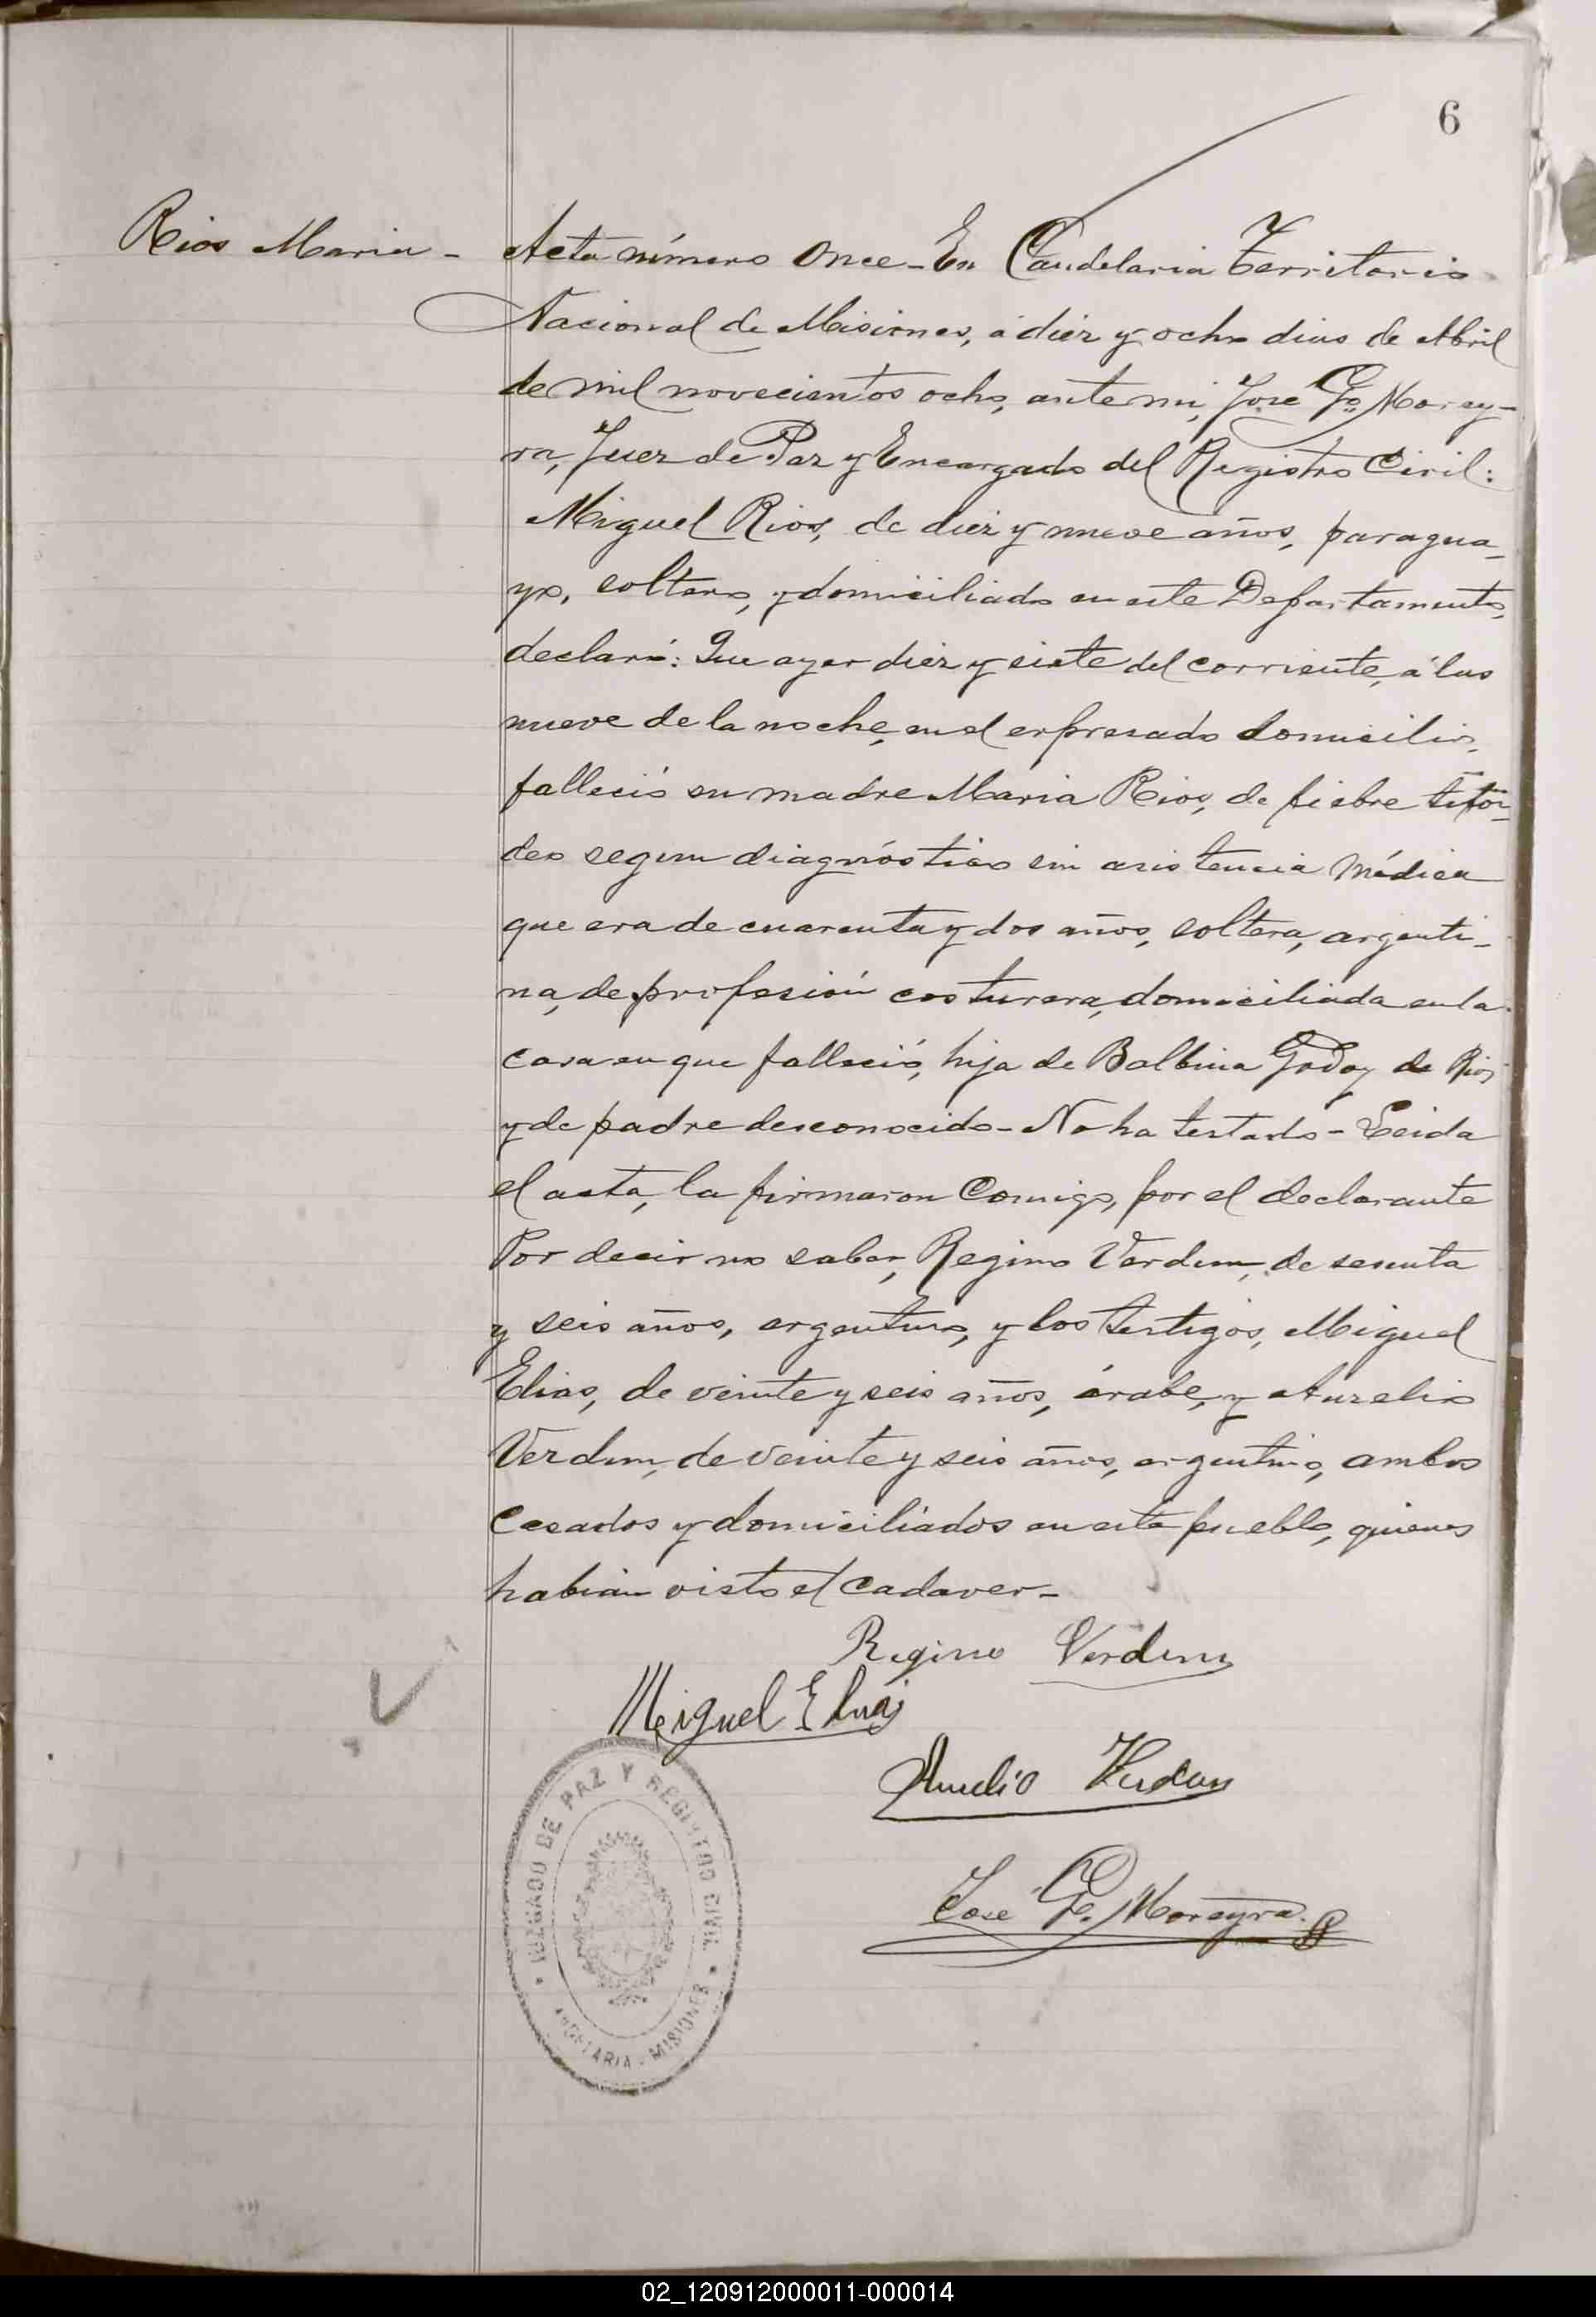 6
Rios Maria -
Acta número Once - En Candelaria Territorio
Nacional de Misiones, á diez y ocho dias de Abril
de mil novecientos ocho, ante mi, José G. Morey-
ra, Juez de Paz y Encargado del Registro Civil:
Miguel Rios, de diez y nueve años, paragua-
yo, soltero, y domiciliado en este Departamento,
declaró: Que ayer diez y siete del corriente, á las
nueve de la noche, en el expresado domicilio,
falleció su madre Maria Rios, de fiebre tifoi-
dea segun diagnóstico sin asistencia médica
que era de cuarenta y dos años, soltera, argenti-
na, de profesión costurera, domiciliada en la
casa en que falleció, hija de Balbina Godoy de Rios
y de padre desconocido - No ha testado - Leida
el acta, la firmaron Conmigo, por el declarante
Por decir no saber, Regino Verdun, de sesenta
y seis años, argentino, y los testigos, Miguel
Elias, de veinte y seis años, árabe, y Aurelio
Verdun, de veinte y seis años, argentino, ambos
Casados y domiciliados en este pueblo, quienes
habian visto el Cadaver -
Regino Verdun
Miguel Elias
Aurelio Verdun
José G. Moreyra
JUZGADO DE PAZ Y REGISTRO CIVIL
CANDELARIA - MISIONES
02_120912000011-000014